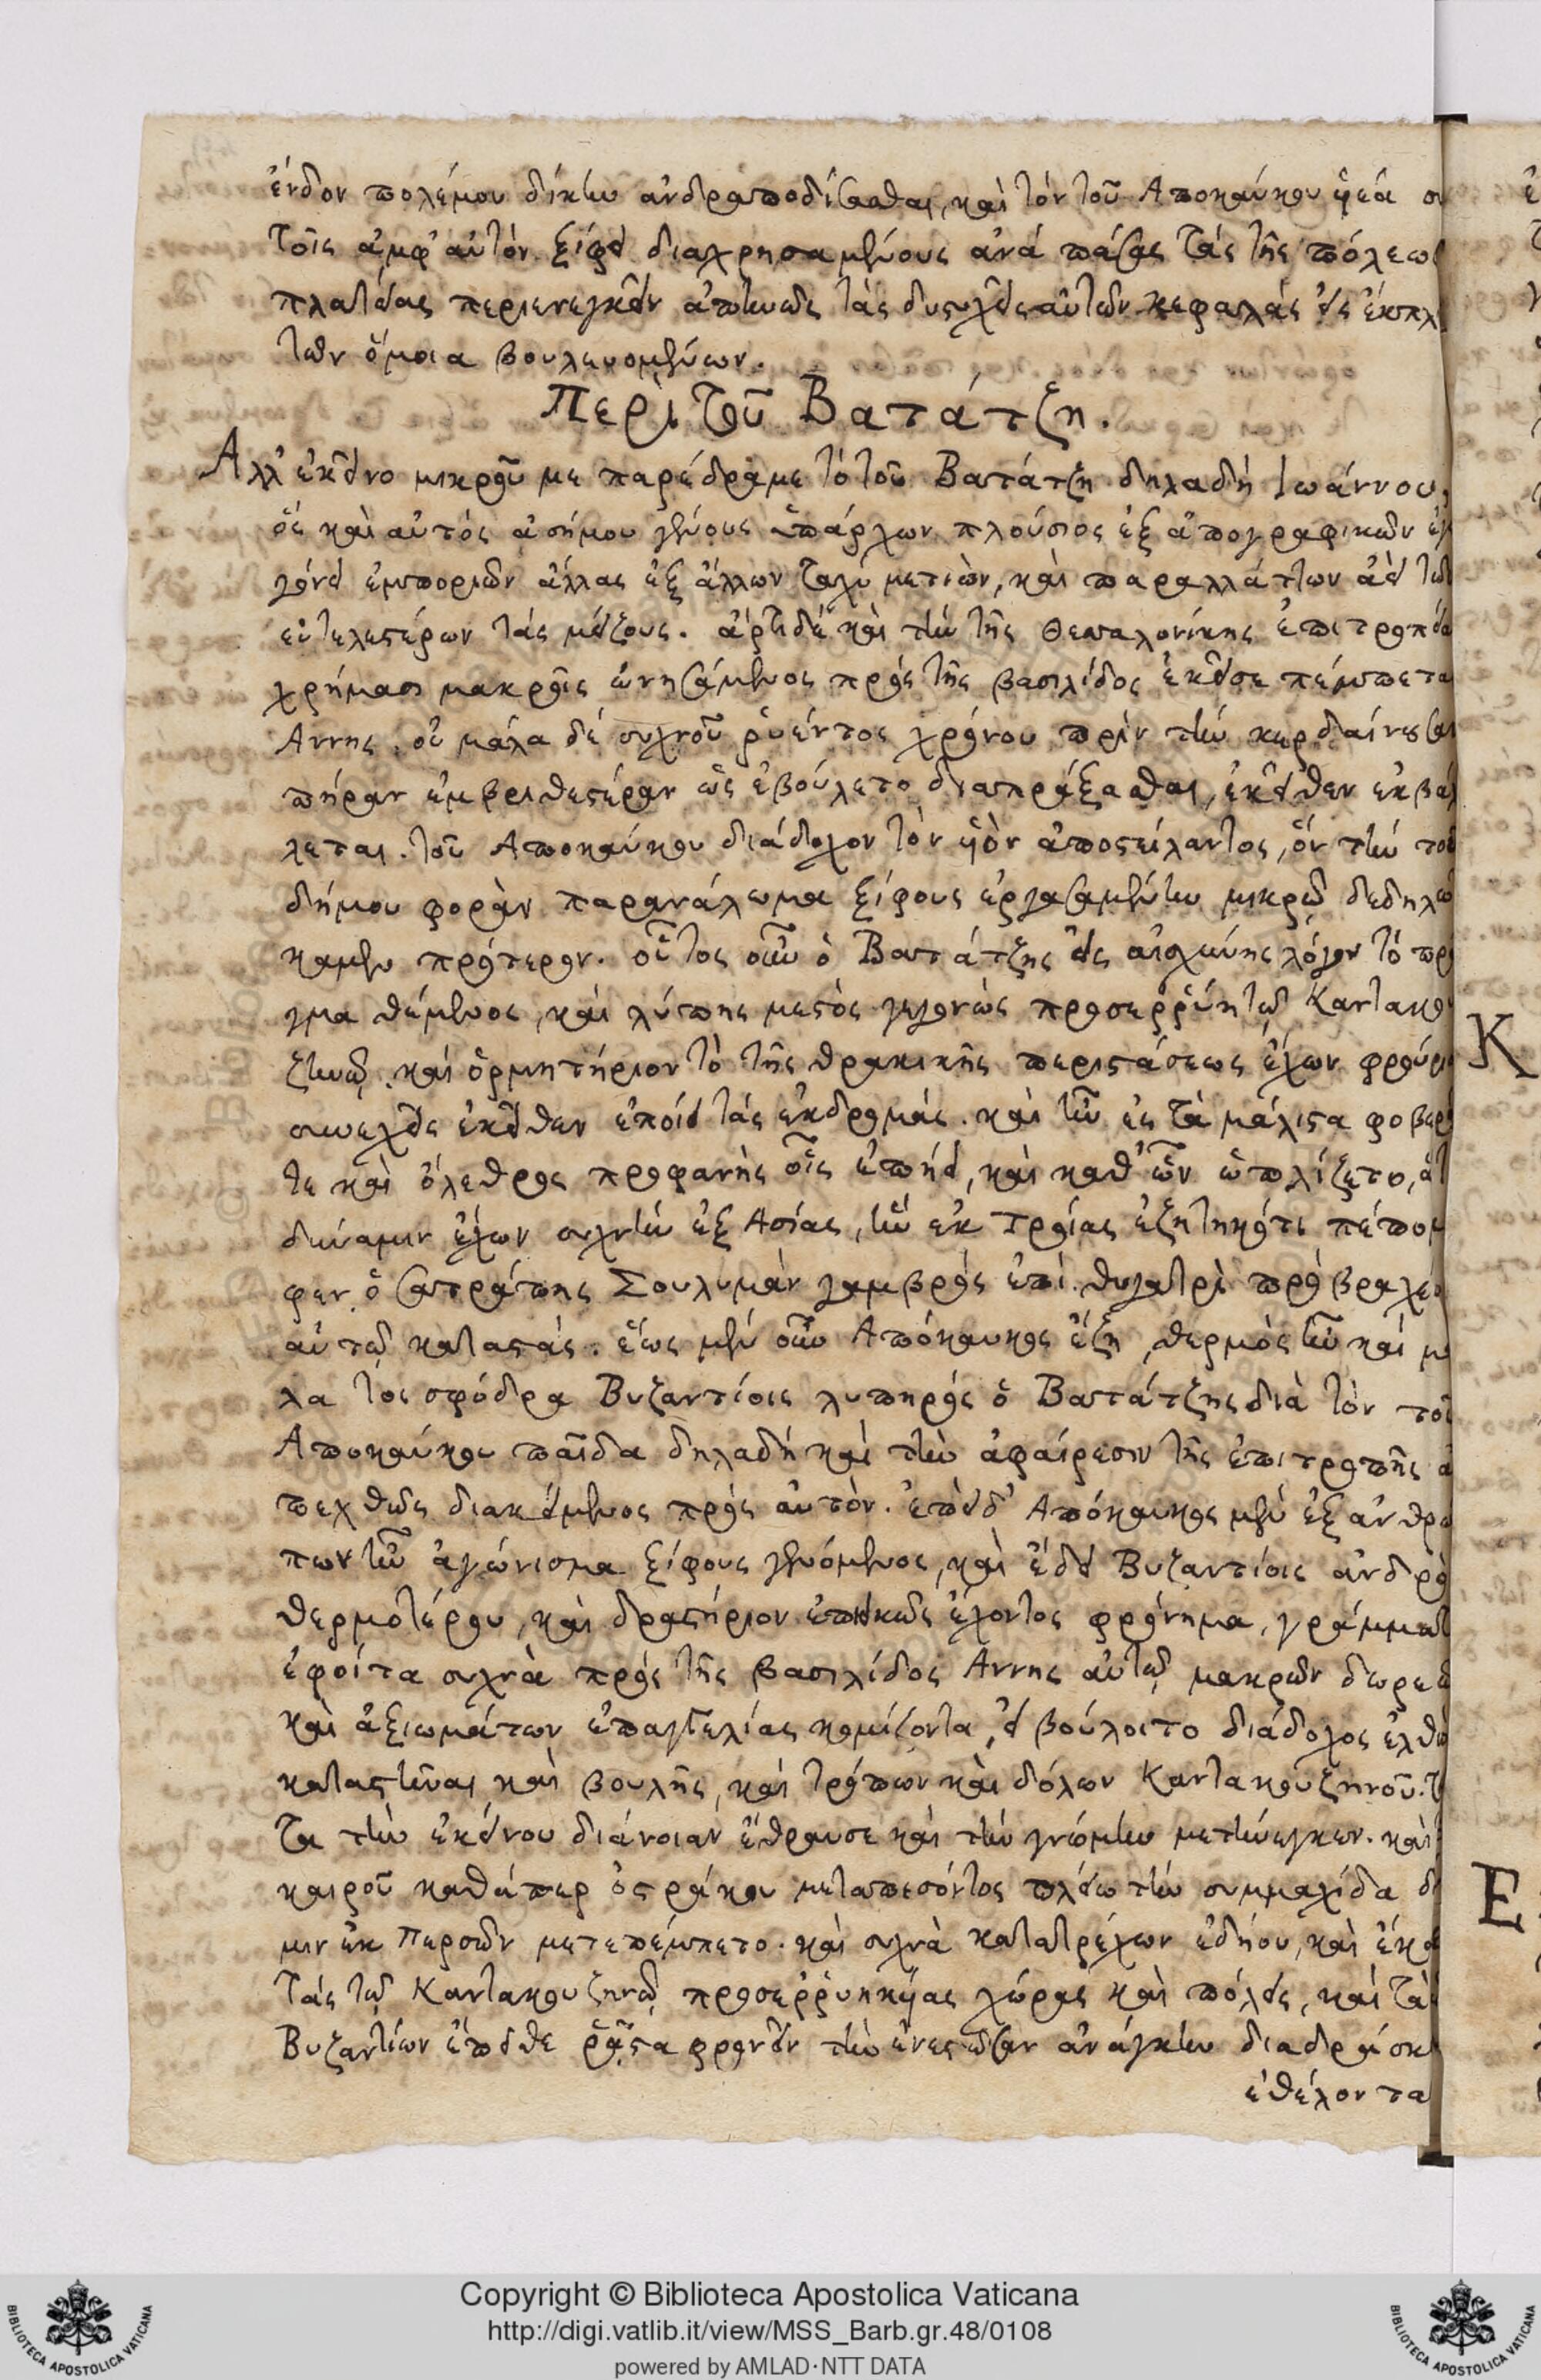 ἔνδον πολέμου δίκην ἀνδραποδίσασθαι, καὶ τὸν τοῦ Ἀποκαύκου ὑιέα σὺ
τοῖς ἀμφ' αὐτὸν ξίφει διαχρησαμένους ἀνὰ πάσας τὰς τῆς πόλεως
πλατείας περιενεγκεῖν ἀπηνῶς τὰς δυστυχεῖς αὐτῶν κεφαλὰς εἰς ἔκπλ
τῶν ὅμοια βουλευομένων.
Περὶ τοῦ Βατάτζη.
Ἀλλ' ἐκεῖνο μικροῦ με παρέδραμε τὸ τοῦ Βατάτζη δηλαδὴ Ἰωάννου,
ὃς καὶ αὐτὸς ἀσήμου γένους ὑπάρχων πλούσιος ἐξ ἀπογραφικῶν ἐγ
γόνει ἐμποριῶν ἄλλας ἐξ ἄλλων ταχὺ μετιὼν, καὶ παραλλάττων ἀεὶ τῶν
εὐτελεστέρων τὰς μείζους. ἄρτι δὲ καὶ τὴν τῆς Θεσσαλονίκης ἐπιτροπεία
χρήμασι μακροῖς ὠνησάμενος πρὸς τῆς βασιλίδος ἐκεῖσε πέμπετα
Ἄννης. οὐ μάλα δὲ συχνοῦ ῥυέντος χρόνου πρὶν τὴν κερδαίνουσαν
πήραν ἐμβριθεστέραν ὡς ἐβούλετο διαπράξασθαι, ἐκεῖθεν ἐκβάλ
λεται. τοῦ Ἀποκαύκου διάδοχον τὸν ὑιὸν ἀποστείλαντος, ὃν τὴν τοῦ
δήμου φορὰν παρανάλωμα ξίφους ἐργασαμένην μικρῷ δεδηλώ
καμεν πρότερον. οὗτος οὖν ὁ Βατάτζης εἰς αἰσχύνης λόγον τὸ πρᾶ
γμα θέμενος, καὶ λύπης μεστὸς γεγονὼς προσερρύη τῷ Καντακου
ζηνῷ. καὶ ὁρμητήριον τὸ τῆς θρακικῆς περιστάσεως ἔχων φρούρι
συνεχεῖς ἐκεῖθεν ἐποίει τὰς ἐκδρομάς. καὶ ἦν ἐς τὰ μάλιστα φοβερό
τε καὶ ὄλεθρος προφανὴς οἷς ἐπήει, καὶ καθ' ὧν ὡπλίζετο, ἅτ
δύναμιν ἔχων συχνὴν ἐξ Ἀσίας, ἣν ἐκ Τροίας ἐζητηκότι πέπομ
φεν ὁ σατράπης Σουλυμὰν γαμβρὸς ἐπὶ θυγατρὶ πρὸ βραχέο
αὐτῷ καταστάς. ἕως μὲν οὖν Ἀπόκαυκος ἔζη, θερμὸς ἦν καὶ μά
λα τοι σφόδρα Βυζαντίοις λυπηρὸς ὁ Βατάτζης διὰ τὸν τοῦ
Ἀποκαύκου παῖδα δηλαδὴ καὶ τὴν ἀφαίρεσιν τῆς ἐπιτροπῆς ἀ
πεχθῶς διακείμενος πρὸς αὐτὸν. ἐπεὶ δ' Ἀπόκαυκος μὲν ἐξ ἀνθρώ
πων ἦν ἀγώνισμα ξίφους γενόμενος, καὶ ἔδει Βυζαντίοις ἀνδρὸ
θερμοτέρου, καὶ δραστήριον ἐπιεικῶς ἔχοντος φρόνημα, γράμματ
ἐφοίτα συχνὰ πρὸς τῆς βασιλίδος Ἄννης αὐτῷ μακρῶν δωρεῶ
καὶ ἀξιωμάτων ἐπαγγελίας κομίζοντα, εἰ βούλοιτο διάδοχος ἐλθὼ
καταστῆναι καὶ βουλῆς, καὶ τρόπων καὶ δόλων Καντακουζηνοῦ. τ
τα τὴν ἐκείνου διάνοιαν ἔθραυσε καὶ τὴν γνώμην μετήνεγκεν. καὶ
καιροῦ καθάπερ ὀστράκου μεταπεσόντος πλείω τὴν συμμαχίδα δύ
μιν ἐκ Περσῶν μετεπέμπετο. καὶ συχνὰ κατατρέχων ἐδῄου, καὶ ἔκα
τὰς τῷ Καντακουζηνῷ προσερρυηκυίας χώρας καὶ πόλεις, καὶ τὰ
Βυζαντίων ἔπειθε ῥᾷστα φρονεῖν τὴν ἐνεστῶσαν ἀνάγκην διαδράσκ
ἐθέλοντα
Κ
Ε
Copyright © Biblioteca Apostolica Vaticana
http://digi.vatlib.it/view/MSS_Barb.gr.48/0108
powered by AMLAD·NTT DATA
BIBLIOTECA APOSTOLICA VATICANA
BIBLIOTECA APOSTOLICA VATICANA